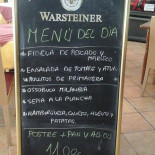 WARSTEINER
MENÚ DEL DIA
FIDEUA DE PESCADO Y
MARISCO
ENSALADA DE TOMATE Y ATUN
ROLLITOS DE PRIMAVERA
OSSOBUCO MILANESA
SEPIA A LA PLANCHA
HAMBURGUESA, QUESO, HUEVO Y
PATATAS
POSTRE + PAN Y AGUA
11,00€